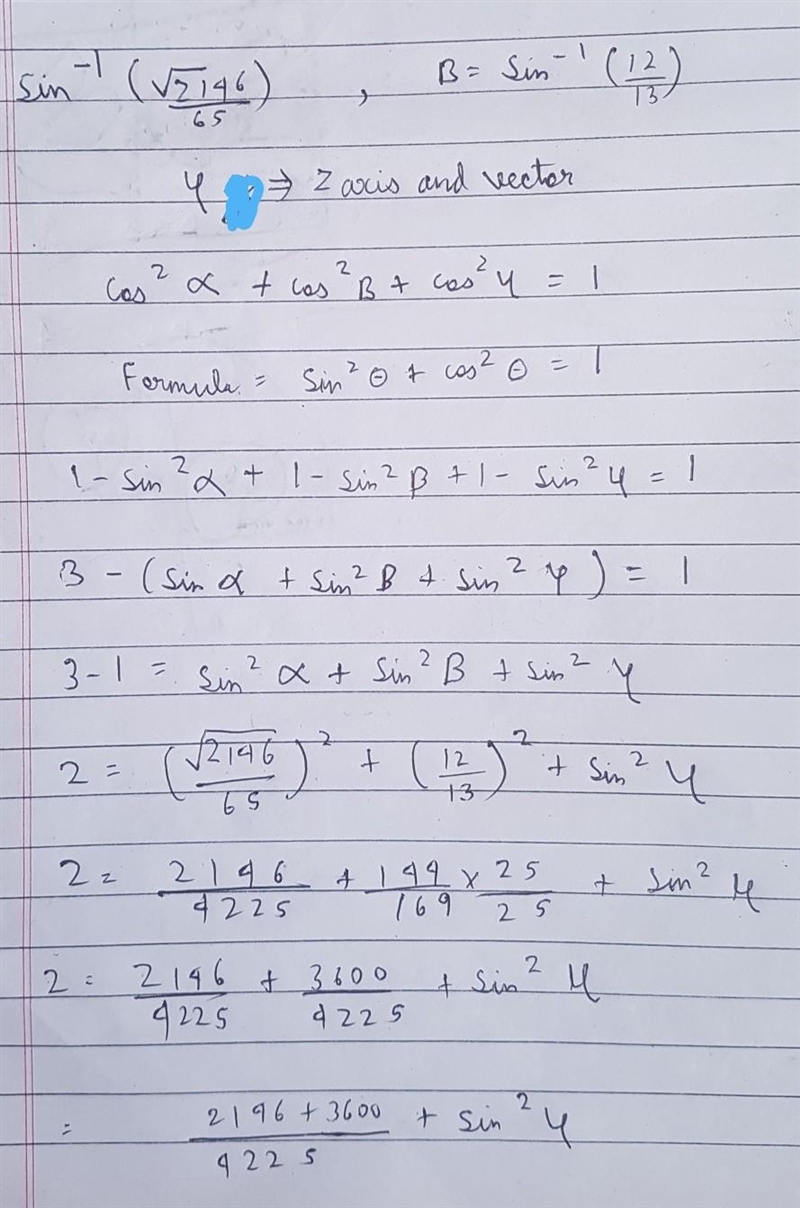 sin⁻¹ (√2146/65) , B = sin⁻¹ (12/13)
γ ⇒ Z axis and vector
cos² α + cos² B + cos² γ = 1
Formula = sin² θ + cos² θ = 1
1 - sin² α + 1 - sin² β + 1 - sin² γ = 1
3 - (sin α + sin² B + sin² γ) = 1
3 - 1 = sin² α + sin² B + sin² γ
2 = (√2146/65)² + (12/13)² + sin² γ
2 = 2146/4225 + 144/169 × 25/25 + sin² γ
2 = 2146/4225 + 3600/4225 + sin² γ
= 2146 + 3600/4225 + sin² γ